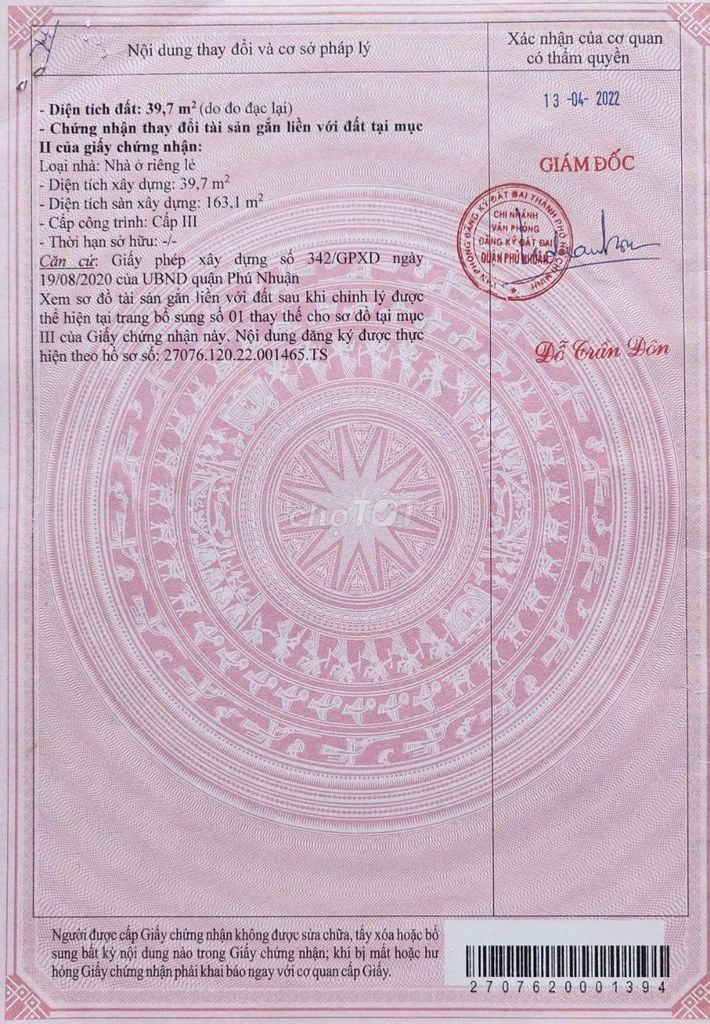 Nội dung thay đổi và cơ sở pháp lý
Xác nhận của cơ quan
có thẩm quyền
- Diện tích đất: 39,7 m² (do đo đạc lại)
- Chứng nhận thay đổi tài sản gắn liền với đất tại mục
II của giấy chứng nhận:
Loại nhà: Nhà ở riêng lẻ
- Diện tích xây dựng: 39,7 m²
- Diện tích sàn xây dựng: 163,1 m²
- Cấp công trình: Cấp III
- Thời hạn sở hữu: -/-
Căn cứ: Giấy phép xây dựng số 342/GPXD ngày
19/08/2020 của UBND quận Phú Nhuận
Xem sơ đồ tài sản gắn liền với đất sau khi chỉnh lý được
thể hiện tại trang bổ sung số 01 thay thế cho sơ đồ tại mục
III của Giấy chứng nhận này. Nội dung đăng ký được thực
hiện theo hồ sơ số: 27076.120.22.001465.TS
13 -04- 2022
GIÁM ĐỐC
VĂN PHÒNG ĐĂNG KÝ ĐẤT ĐAI THÀNH PHỐ HỒ CHÍ MINH
CHI NHÁNH
VĂN PHÒNG
ĐĂNG KÝ ĐẤT ĐAI
QUẬN PHÚ NHUẬN
Đỗ Trần Đôn
chợTỐT
Người được cấp Giấy chứng nhận không được sửa chữa, tẩy xóa hoặc bổ
sung bất kỳ nội dung nào trong Giấy chứng nhận; khi bị mất hoặc hư
hỏng Giấy chứng nhận phải khai báo ngay với cơ quan cấp Giấy.
2707620001394